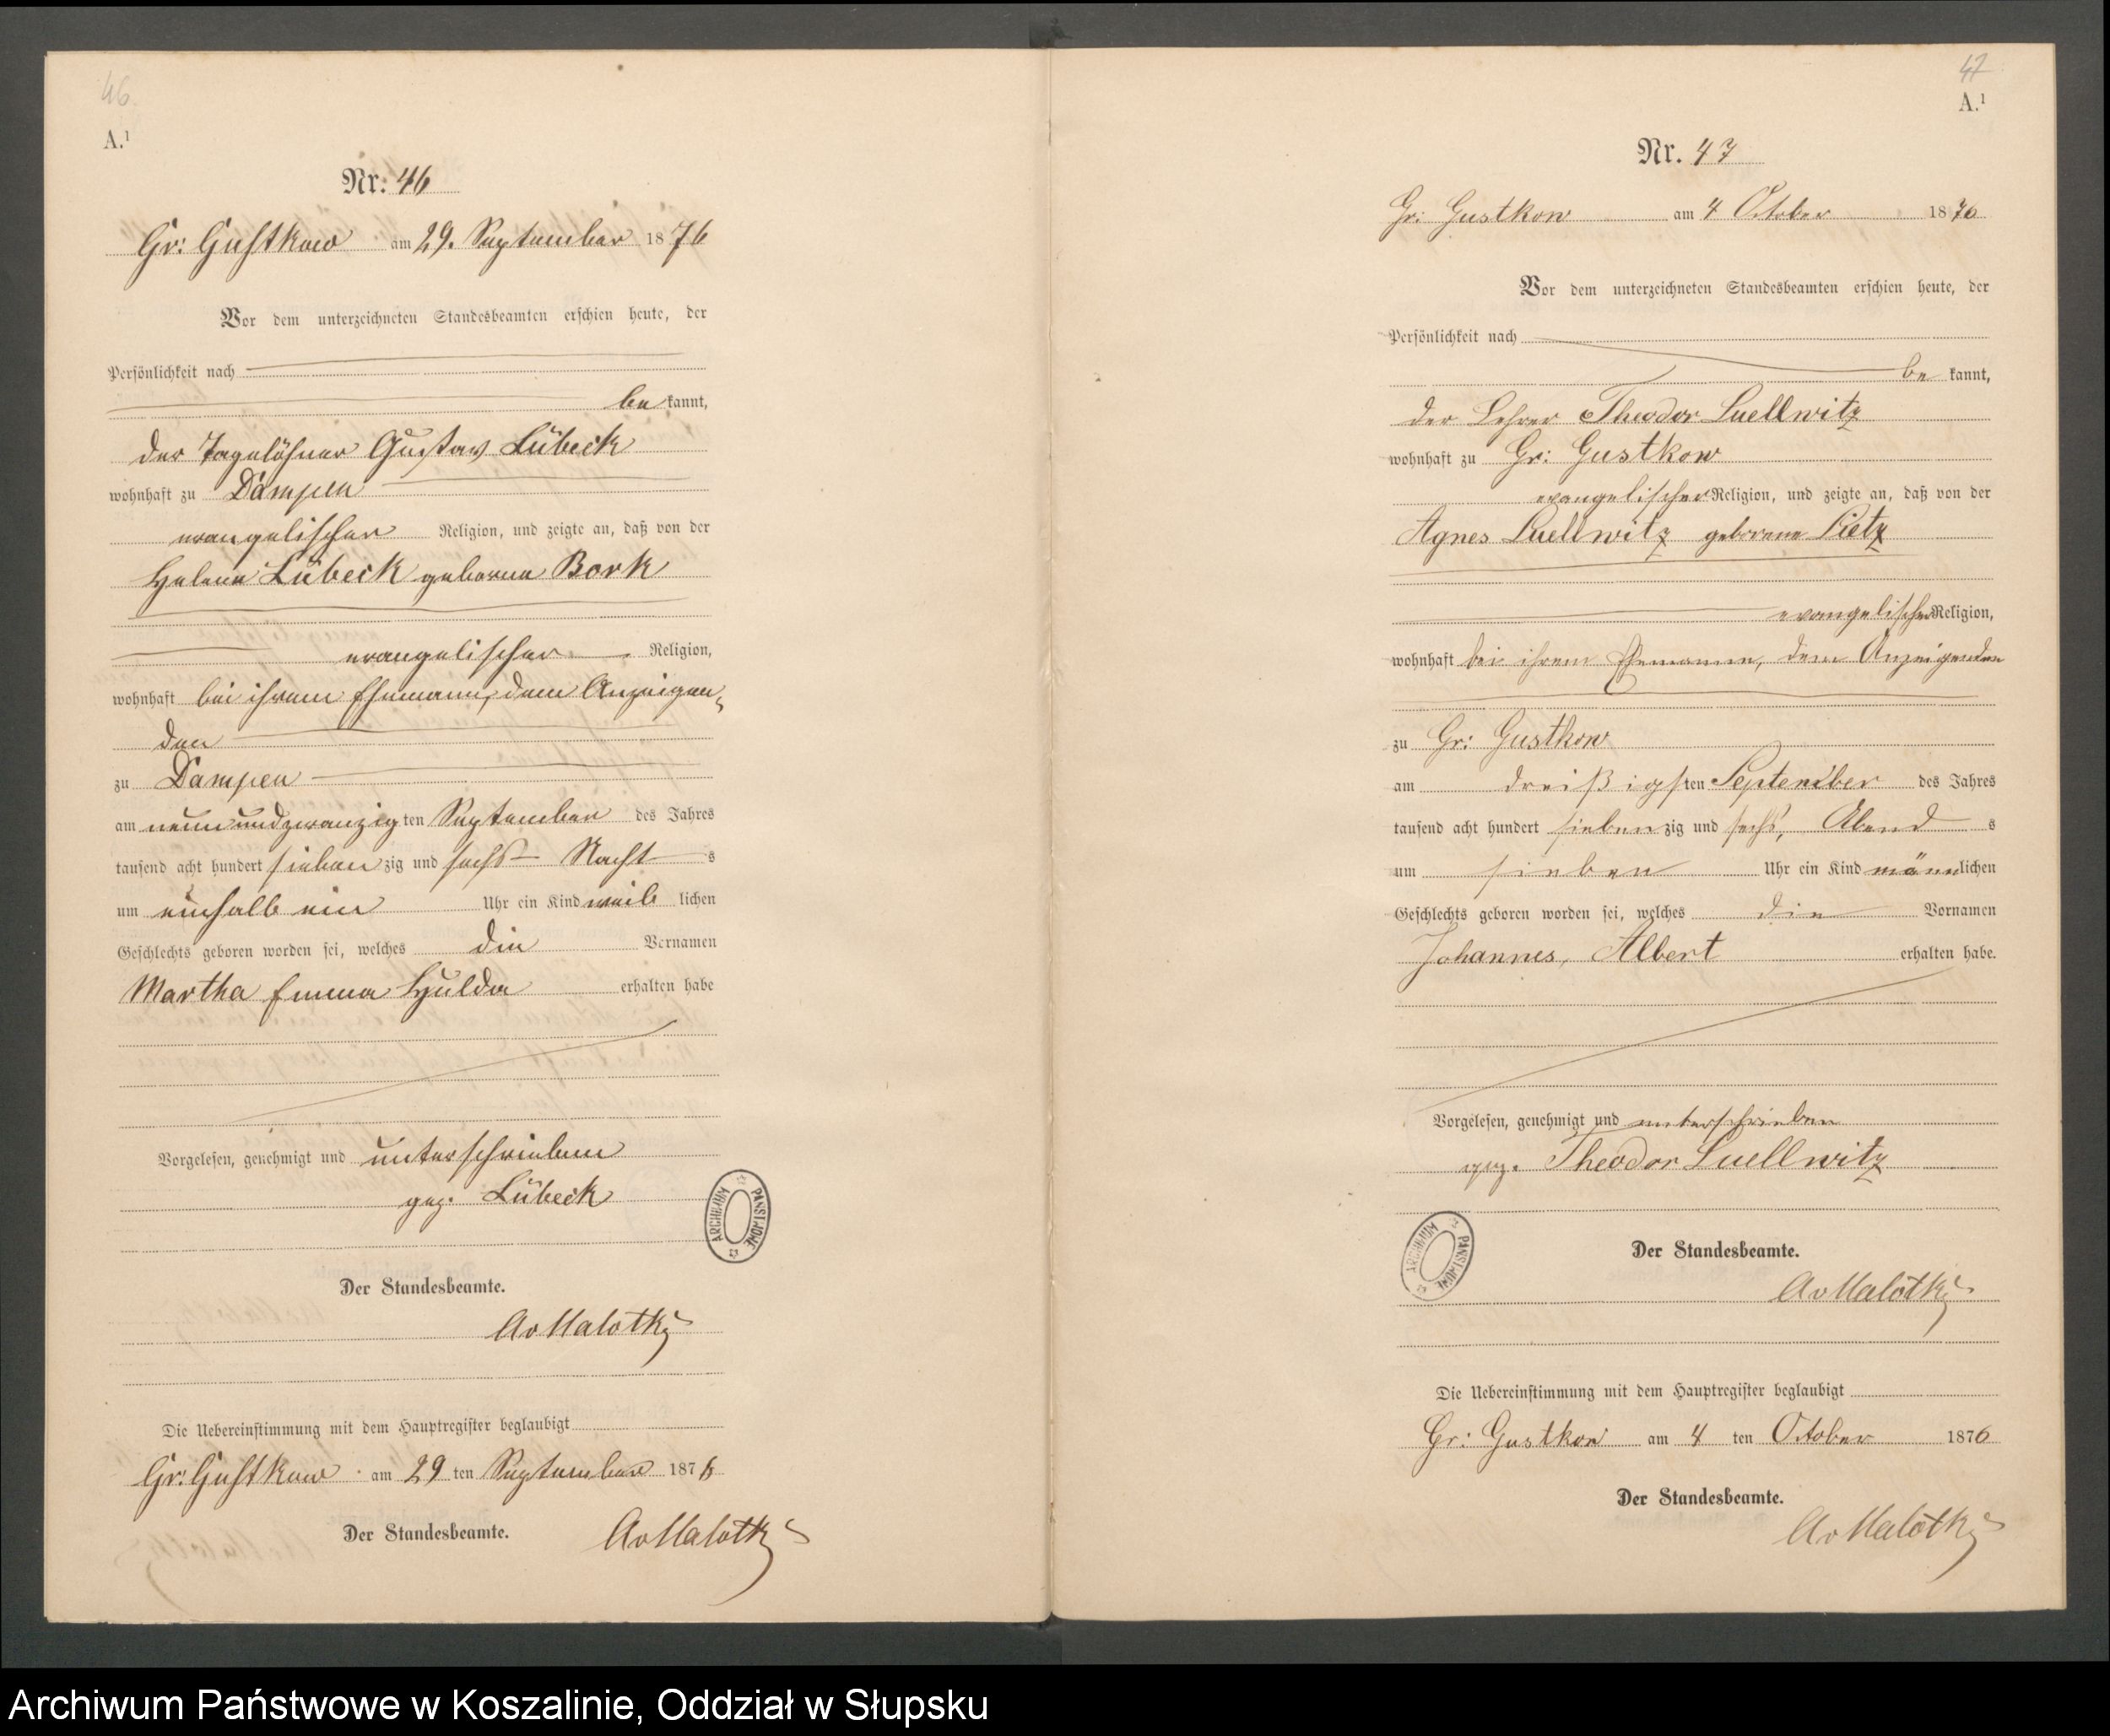 46
A.¹
Nr. 46
Gr: Gustkow am 29. September 1876
Vor dem unterzeichneten Standesbeamten erschien heute, der
Persönlichkeit nach
be kannt,
der Tagelöhner Gustav Lübeck
wohnhaft zu Dampen
evangelischer Religion, und zeigte an, daß von der
Helene Lübeck geborne Bork
evangelischer Religion,
wohnhaft bei ihrem Ehemann, dem Anzeigen-
den
zu Dampen
am neunundzwanzig ten September des Jahres
tausend acht hundert sieben zig und sechs Nacht s
um einhalb ein Uhr ein Kind weib lichen
Geschlechts geboren worden sei, welches die Vornamen
Martha Emma Hulda erhalten habe
Vorgelesen, genehmigt und unterschrieben
gez. Lübeck
ARCHIWUM PAŃSTWOWE
Der Standesbeamte.
AvMalotky
Die Uebereinstimmung mit dem Hauptregister beglaubigt
Gr: Gustkow am 29 ten September 1876
Der Standesbeamte. AvMalotky
47
A.¹
Nr. 47
Gr: Gustkow am 4 October 1876
Vor dem unterzeichneten Standesbeamten erschien heute, der
Persönlichkeit nach
be kannt,
der Lehrer Theodor Luellwitz
wohnhaft zu Gr: Gustkow
evangelischer Religion, und zeigte an, daß von der
Agnes Luellwitz geborene Lietz
evangelischer Religion,
wohnhaft bei ihrem Ehemanne, dem Anzeigenden
zu Gr: Gustkow
am dreißigs ten September des Jahres
tausend acht hundert sieben zig und sechs, Abend s
um sieben Uhr ein Kind männ lichen
Geschlechts geboren worden sei, welches die Vornamen
Johannes, Albert erhalten habe.
Vorgelesen, genehmigt und unterschrieben
gez. Theodor Luellwitz
ARCHIWUM PAŃSTWOWE
Der Standesbeamte.
AvMalotky
Die Uebereinstimmung mit dem Hauptregister beglaubigt
Gr: Gustkow am 4 ten October 1876
Der Standesbeamte.
AvMalotky
Archiwum Państwowe w Koszalinie, Oddział w Słupsku